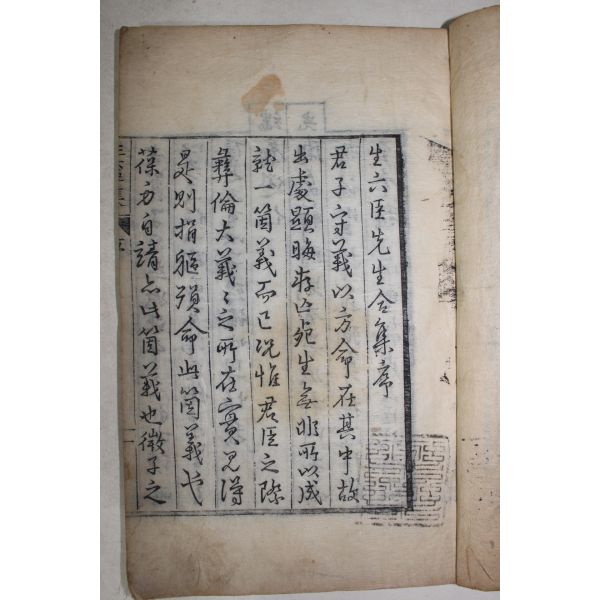 生六臣先生合集序
君子守義以方命在其中故
出處顯晦存亡死生無非所以成
就一箇義而已况惟君臣之際
彝倫大義〻之所在實見得
是則捐軀殞命此箇義也
葆身自靖亦此箇義也微子之